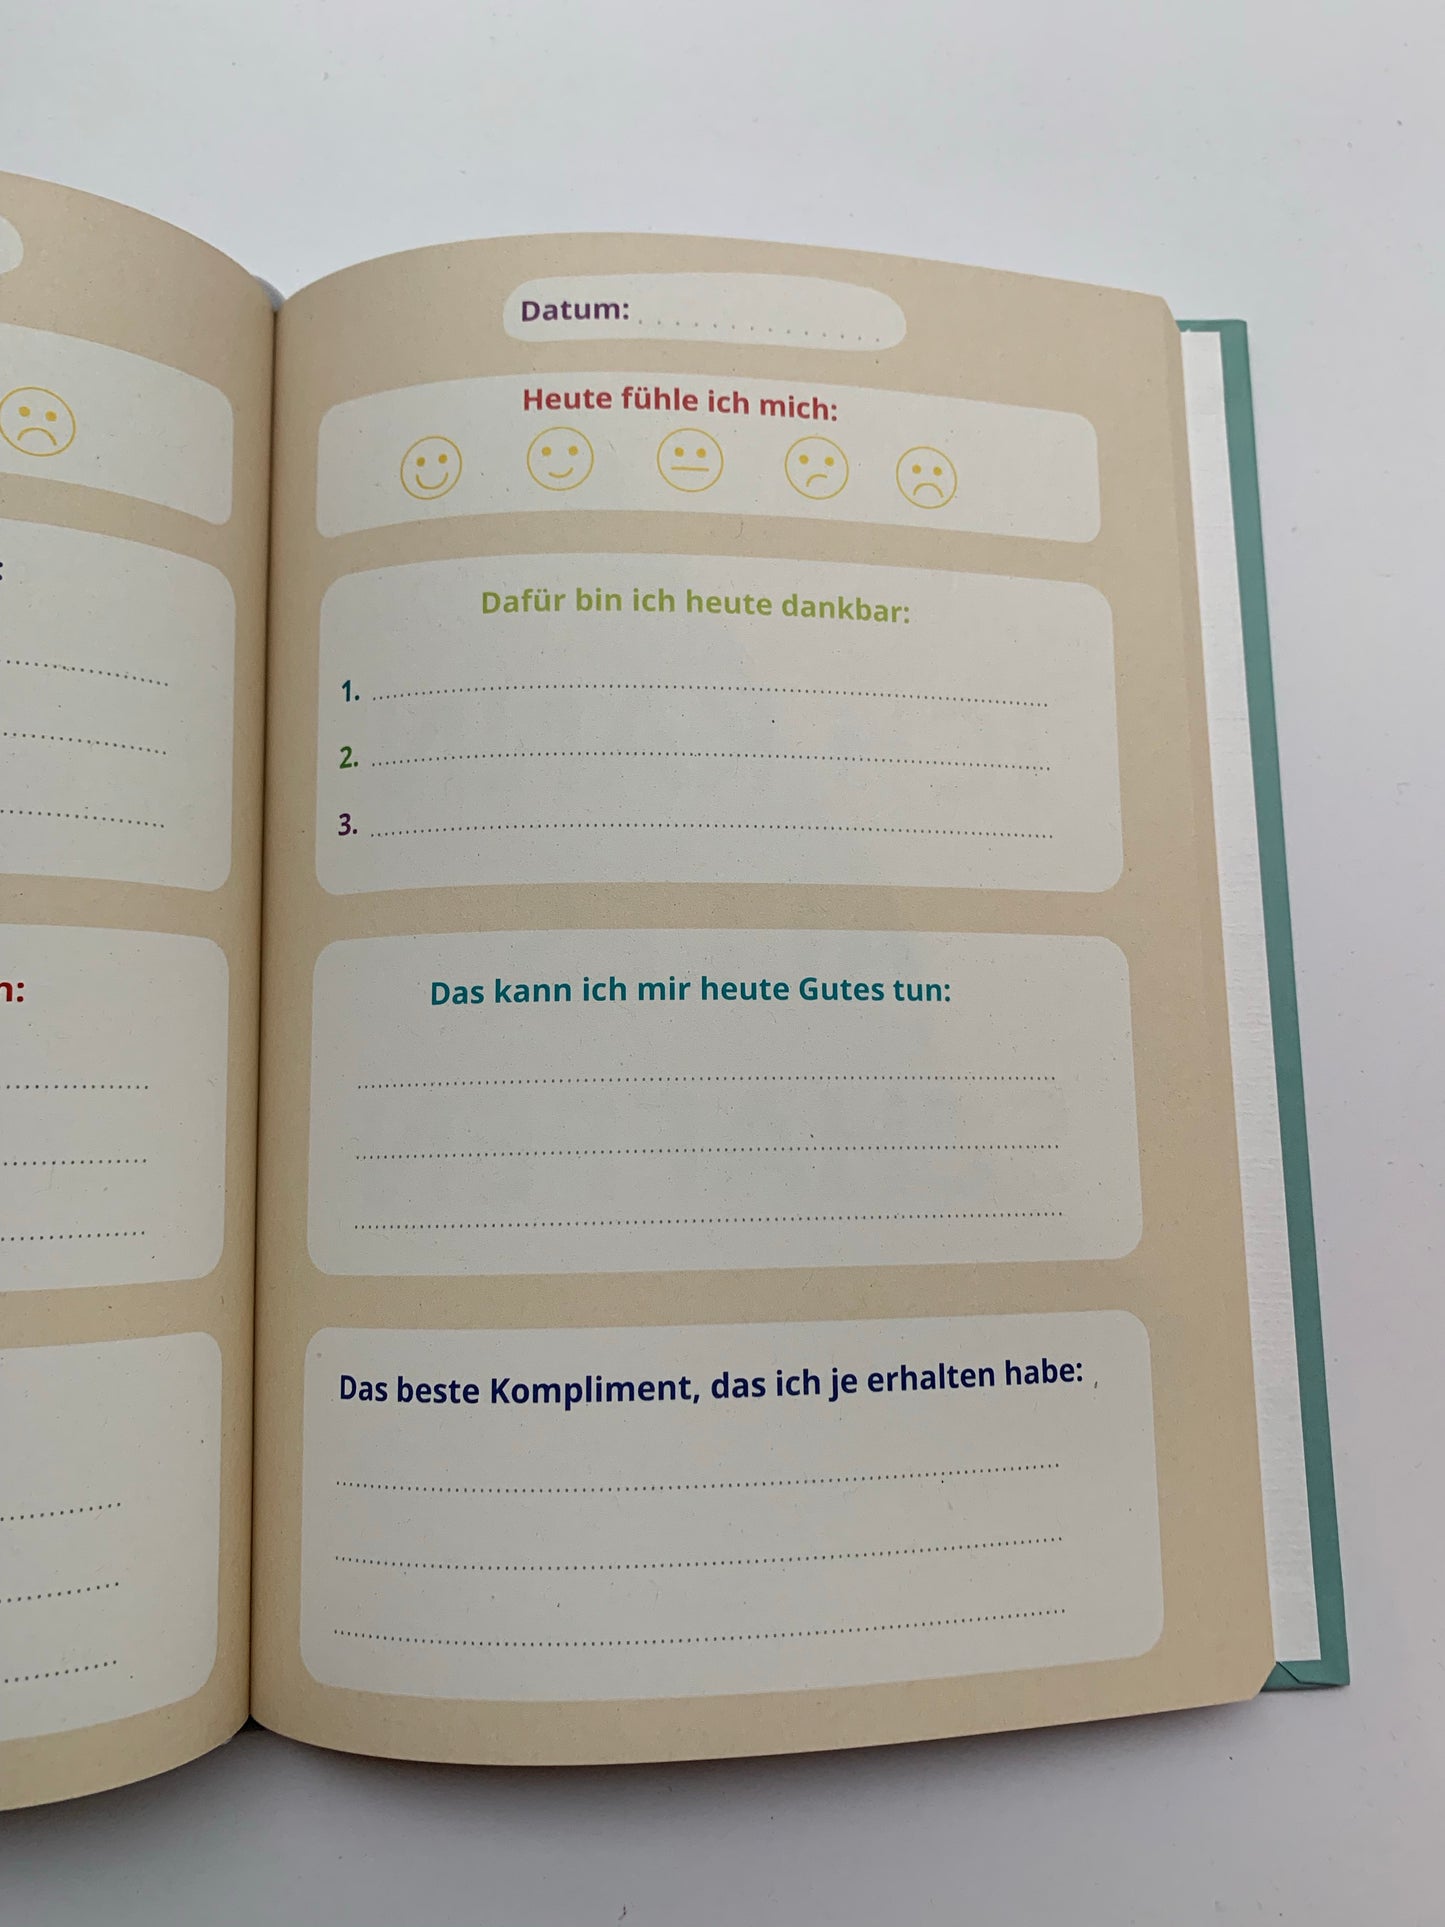 Datum:
Heute fühle ich mich:
Dafür bin ich heute dankbar:
1.
2.
3.
Das kann ich mir heute Gutes tun:
Das beste Kompliment, das ich je erhalten habe: